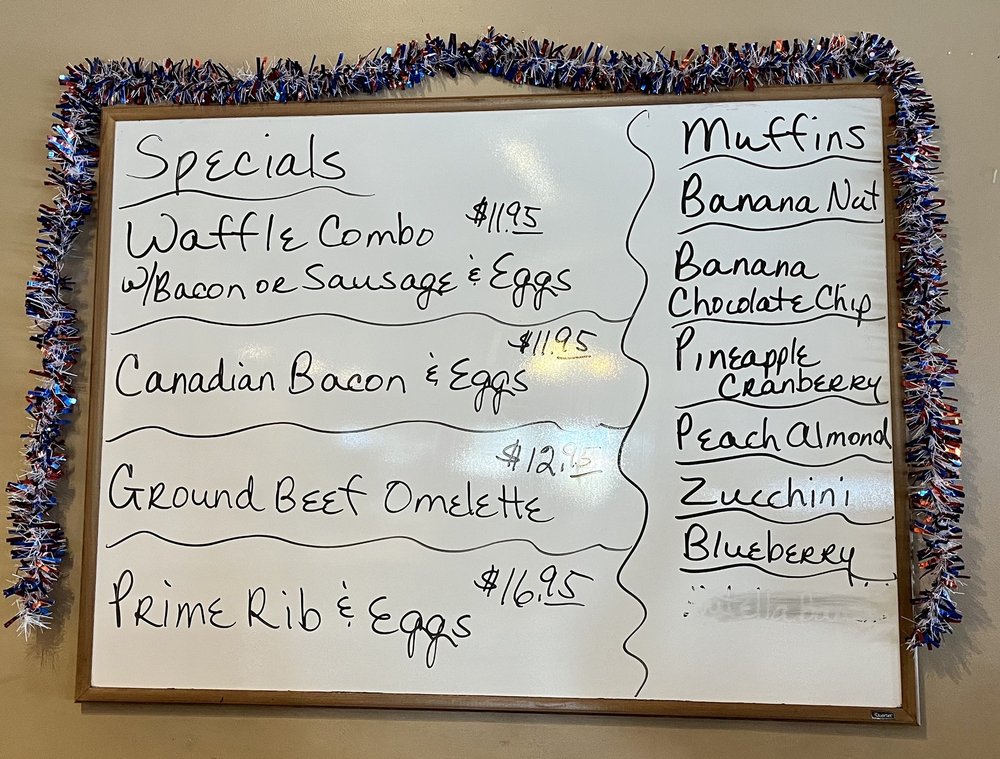 Specials
Waffle Combo $11.95
w/Bacon or Sausage & Eggs
$11.95
Canadian Bacon & Eggs
$12.95
Ground Beef Omelette
$16.95
Prime Rib & Eggs
Muffins
Banana Nut
Banana
Chocolate Chip
Pineapple
Cranberry
Peach Almond
Zucchini
Blueberry